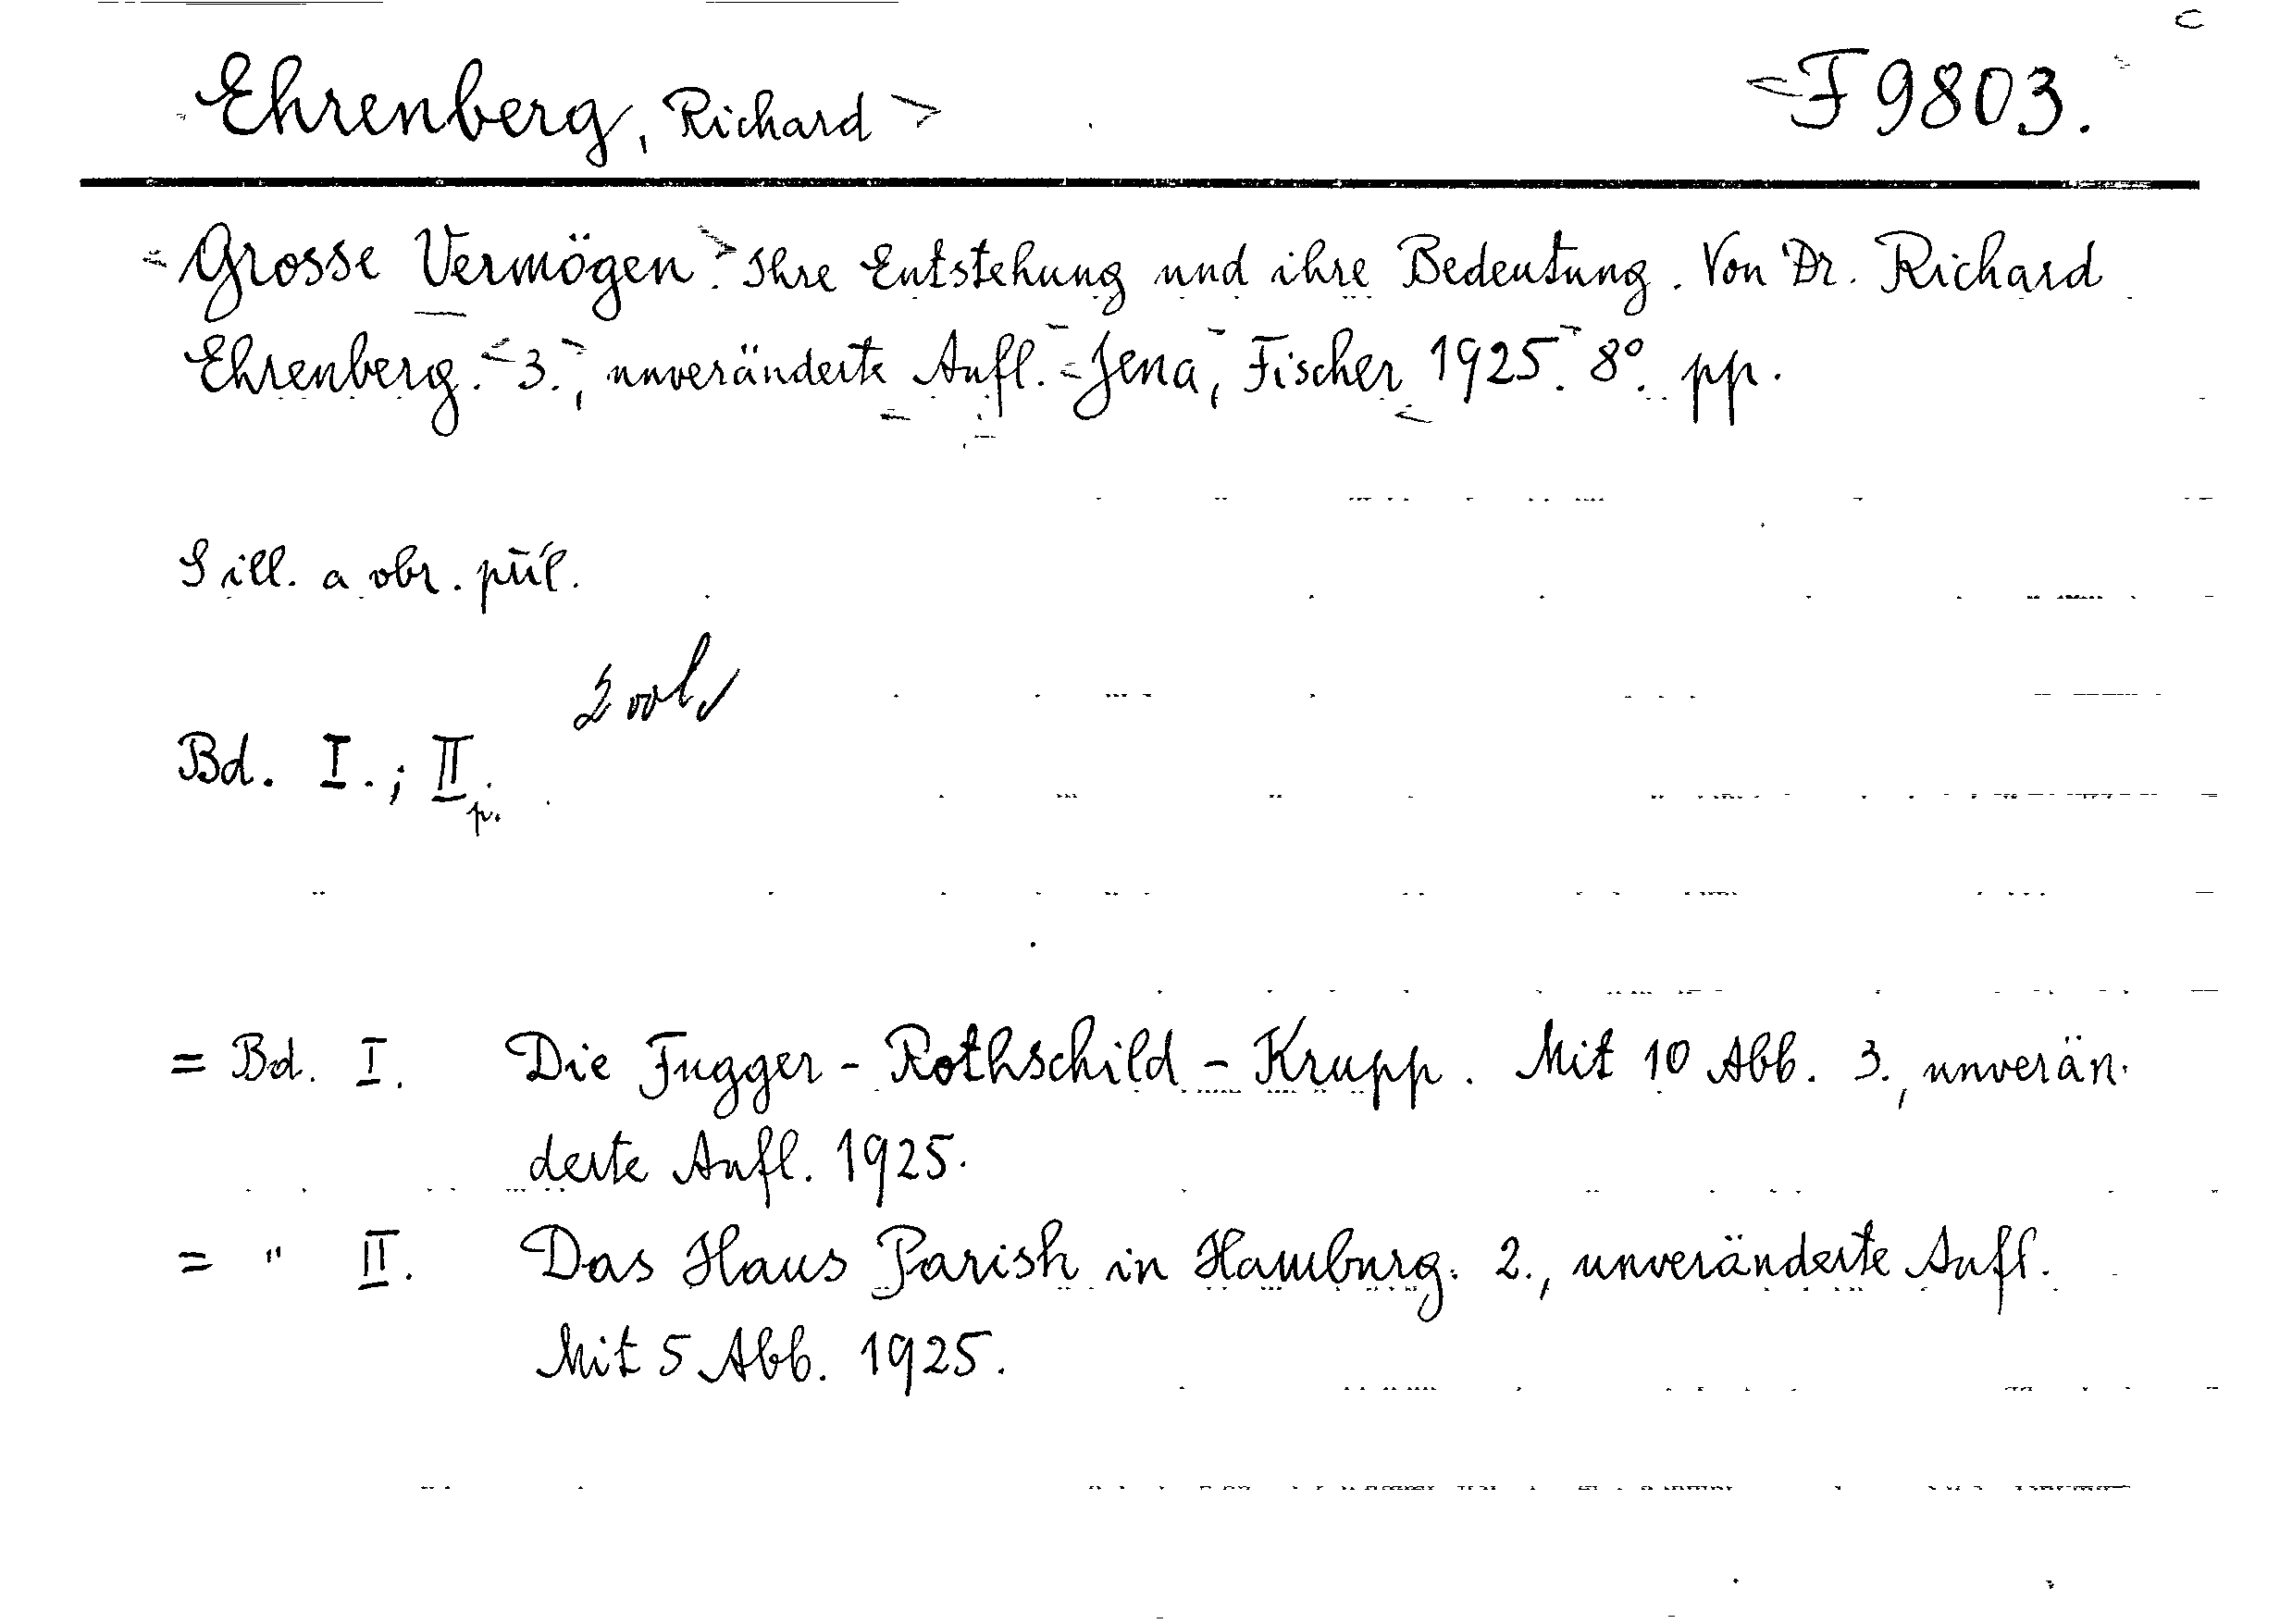 Ehrenberg, Richard F 9803.
Grosse Vermögen. Ihre Entstehung und ihre Bedeutung. Von Dr. Richard
Ehrenberg. 3., unveränderte Aufl. Jena, Fischer 1925. 8°. pp.
S ill. a obr. příl.
Bd. I.; II.
p.
= Bd. I. Die Fugger - Rothschild - Krupp. Mit 10 Abb. 3., unverän-
derte Aufl. 1925.
= " II. Das Haus Parish in Hamburg. 2., unveränderte Aufl.
Mit 5 Abb. 1925.